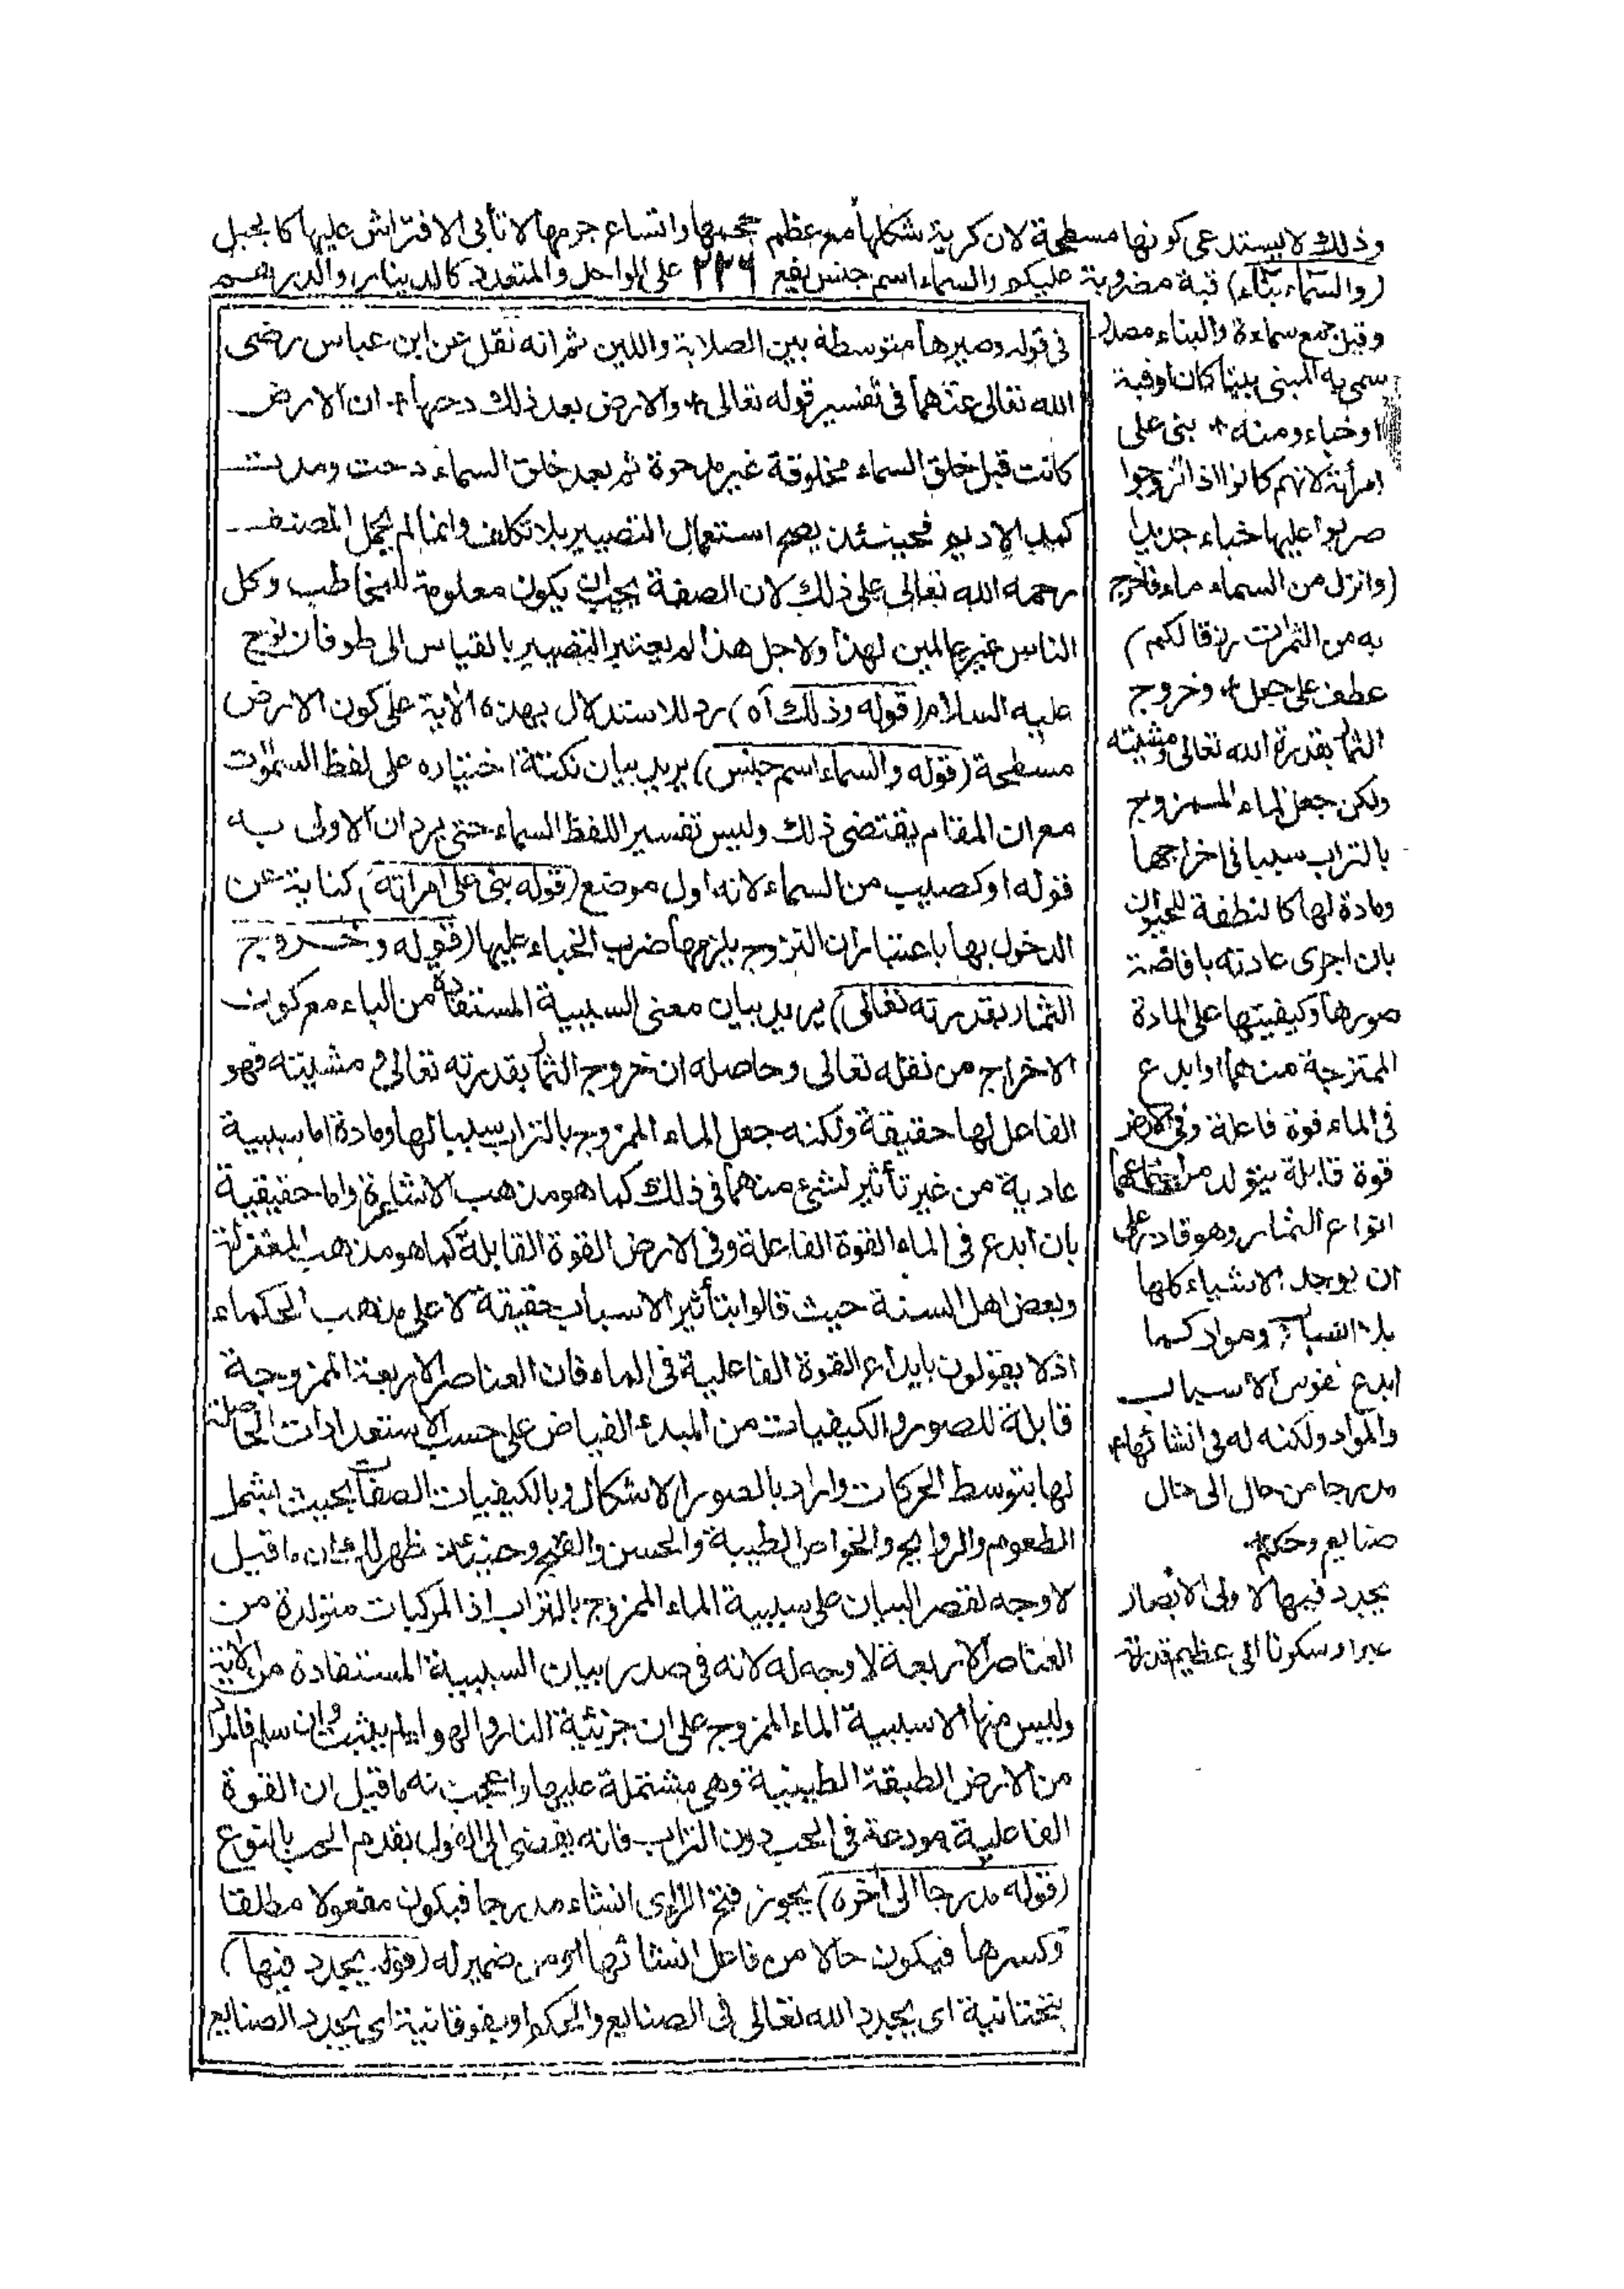 وذلك لايستدعى كونها مسطحة لان كرية شكلها مع عظم حجمها واتساع جرمها لا تأبى الافتراش عليها كالجبل
(والسماء بناء) قبة مضروبة عليكم والسماء اسم جنس يقع ٢٢٦ على الواحد والمتعدد كالدينار والدرهم
وقيل جمع سماءة والبناء مصدر
سمى به المبنى بيتا كان او قبة
او خباء ومنه * بنى على
امرأته لانهم كانوا اذا تزوجوا
ضربوا عليها خباء جديدا
(وانزل من السماء ماء فاخرج
به من الثمرات رزقا لكم)
عطف على جعل * وخروج
الثمار بقدرة الله تعالى ومشيته
ولكن جعل الماء الممزوج
بالتراب سببا فى اخراجها
ومادة لها كالنطفة للحيوان
بان اجرى عادته بافاضة
صورها وكيفيتها على المادة
الممتزجة منهما او ابدع
فى الماء قوة فاعلة وفى الارض
قوة قابلة يتولد من اجتماعهما
انواع الثمار وهو قادر على
ان يوجد الاشياء كلها
بلا اسباب ومواد كما
ابدع نفوس الاسباب
والمواد ولكنه له فى انشائها
مدرجا من حال الى حال
صنايع وحكم
يجدد فيها لاولى الابصار
عبرا وسكونا الى عظيم قدرته
فى قوله وصيرها متوسطة بين الصلابة واللين ثم انه نقل عن ابن عباس رضى
الله تعالى عنهما فى تفسير قوله تعالى * والارض بعد ذلك دحيها * ان الارض
كانت قبل خلق السماء مخلوقة غير مدحوة ثم بعد خلق السماء دحت ومدت
كمد الاديم فحينئذ يصح استعمال التصيير بلا تكلف وانما لم يحمل المصنف
رحمه الله تعالى على ذلك لان الصفة يجب ان يكون معلومة للمخاطب وكل
الناس غير عالمين لهذا ولاجل هذا لم يعتبر التصيير بالقياس الى طوفان نوح
عليه السلام (قوله وذلك آه) رد للاستدلال بهذه الآية على كون الارض
مسطحة (قوله والسماء اسم جنس) يريد بيان نكتة اختياره على لفظ السموت
مع ان المقام يقتضى ذلك وليس تفسير اللفظ السماء حتى يرد ان الاولى به
قوله او كصيب من السماء لانه اول موضع (قوله بنى على امرأته) كناية عن
الدخول بها باعتبار ان التزوج يلزمها ضرب الخباء عليها (قوله وخروج
الثمار بقدرته تعالى) يريد بيان معنى السببية المستفادة من الباء مع كون
الاخراج من نقله تعالى وحاصله ان خروج الثمار بقدرته تعالى ومشيته فهو
الفاعل لها حقيقة ولكنه جعل الماء الممزوج بالتراب سببا لها ومادة اما سببية
عادية من غير تأثير لشئ منهما فى ذلك كما هو مذهب الاشاعرة واما حقيقية
بان ابدع فى الماء القوة الفاعلة وفى الارض القوة القابلة كما هو مذهب المعتزلة
وبعض اهل السنة حيث قالوا بتأثير الاسباب حقيقة لا على مذهب الحكماء
اذ لا يقولون بابداع القوة الفاعلية فى الماء فان العناصر الاربعة الممزوجة
قابلة للصور والكيفيات من المبدء الفياض على حسب الاستعدادات الحاصلة
لها بتوسط الحركات واراد بالصور الاشكال وبالكيفيات الصفات بحيث يشمل
الطعوم والروايح والخواص الطيبة والحسن والقبح وحينئذ ظهر لك ان ما قيل
لا وجه لقصر البيان على سببية الماء الممزوج بالتراب اذ المركبات متولدة من
العناصر الاربعة لا وجه له لانه فى صدر بيان السببية المستفادة من الآية
وليس منها الا سببية الماء الممزوج على ان جزئية النار والهواء لم يثبت وان سلم فالمراد
من الارض الطبقة الطينية وهى مشتملة عليها واعجب منه ما قيل ان القوة
الفاعلية مودعة فى الحب دون التراب فانه يفضى الى القول بقدم الحب بالنوع
(قوله مدرجا الى آخره) يجوز فتح الراء اى انشاء مدرجا فيكون مفعولا مطلقا
وكسرها فيكون حالا من فاعل انشائها او من ضمير له (قوله يجدد فيها)
بتحتانية اى يجدد الله تعالى فى الصنايع والحكم او بفوقانية اى تجدد الصنايع